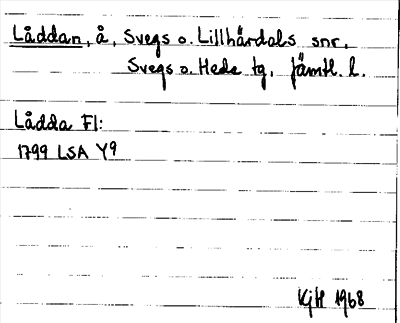 Låddan, å, Svegs o. Lillhärdals snr,
Svegs o. Hede tg, Jämtl. l.
Lådda Fl:
1799 LSA Y9
KjH 1968